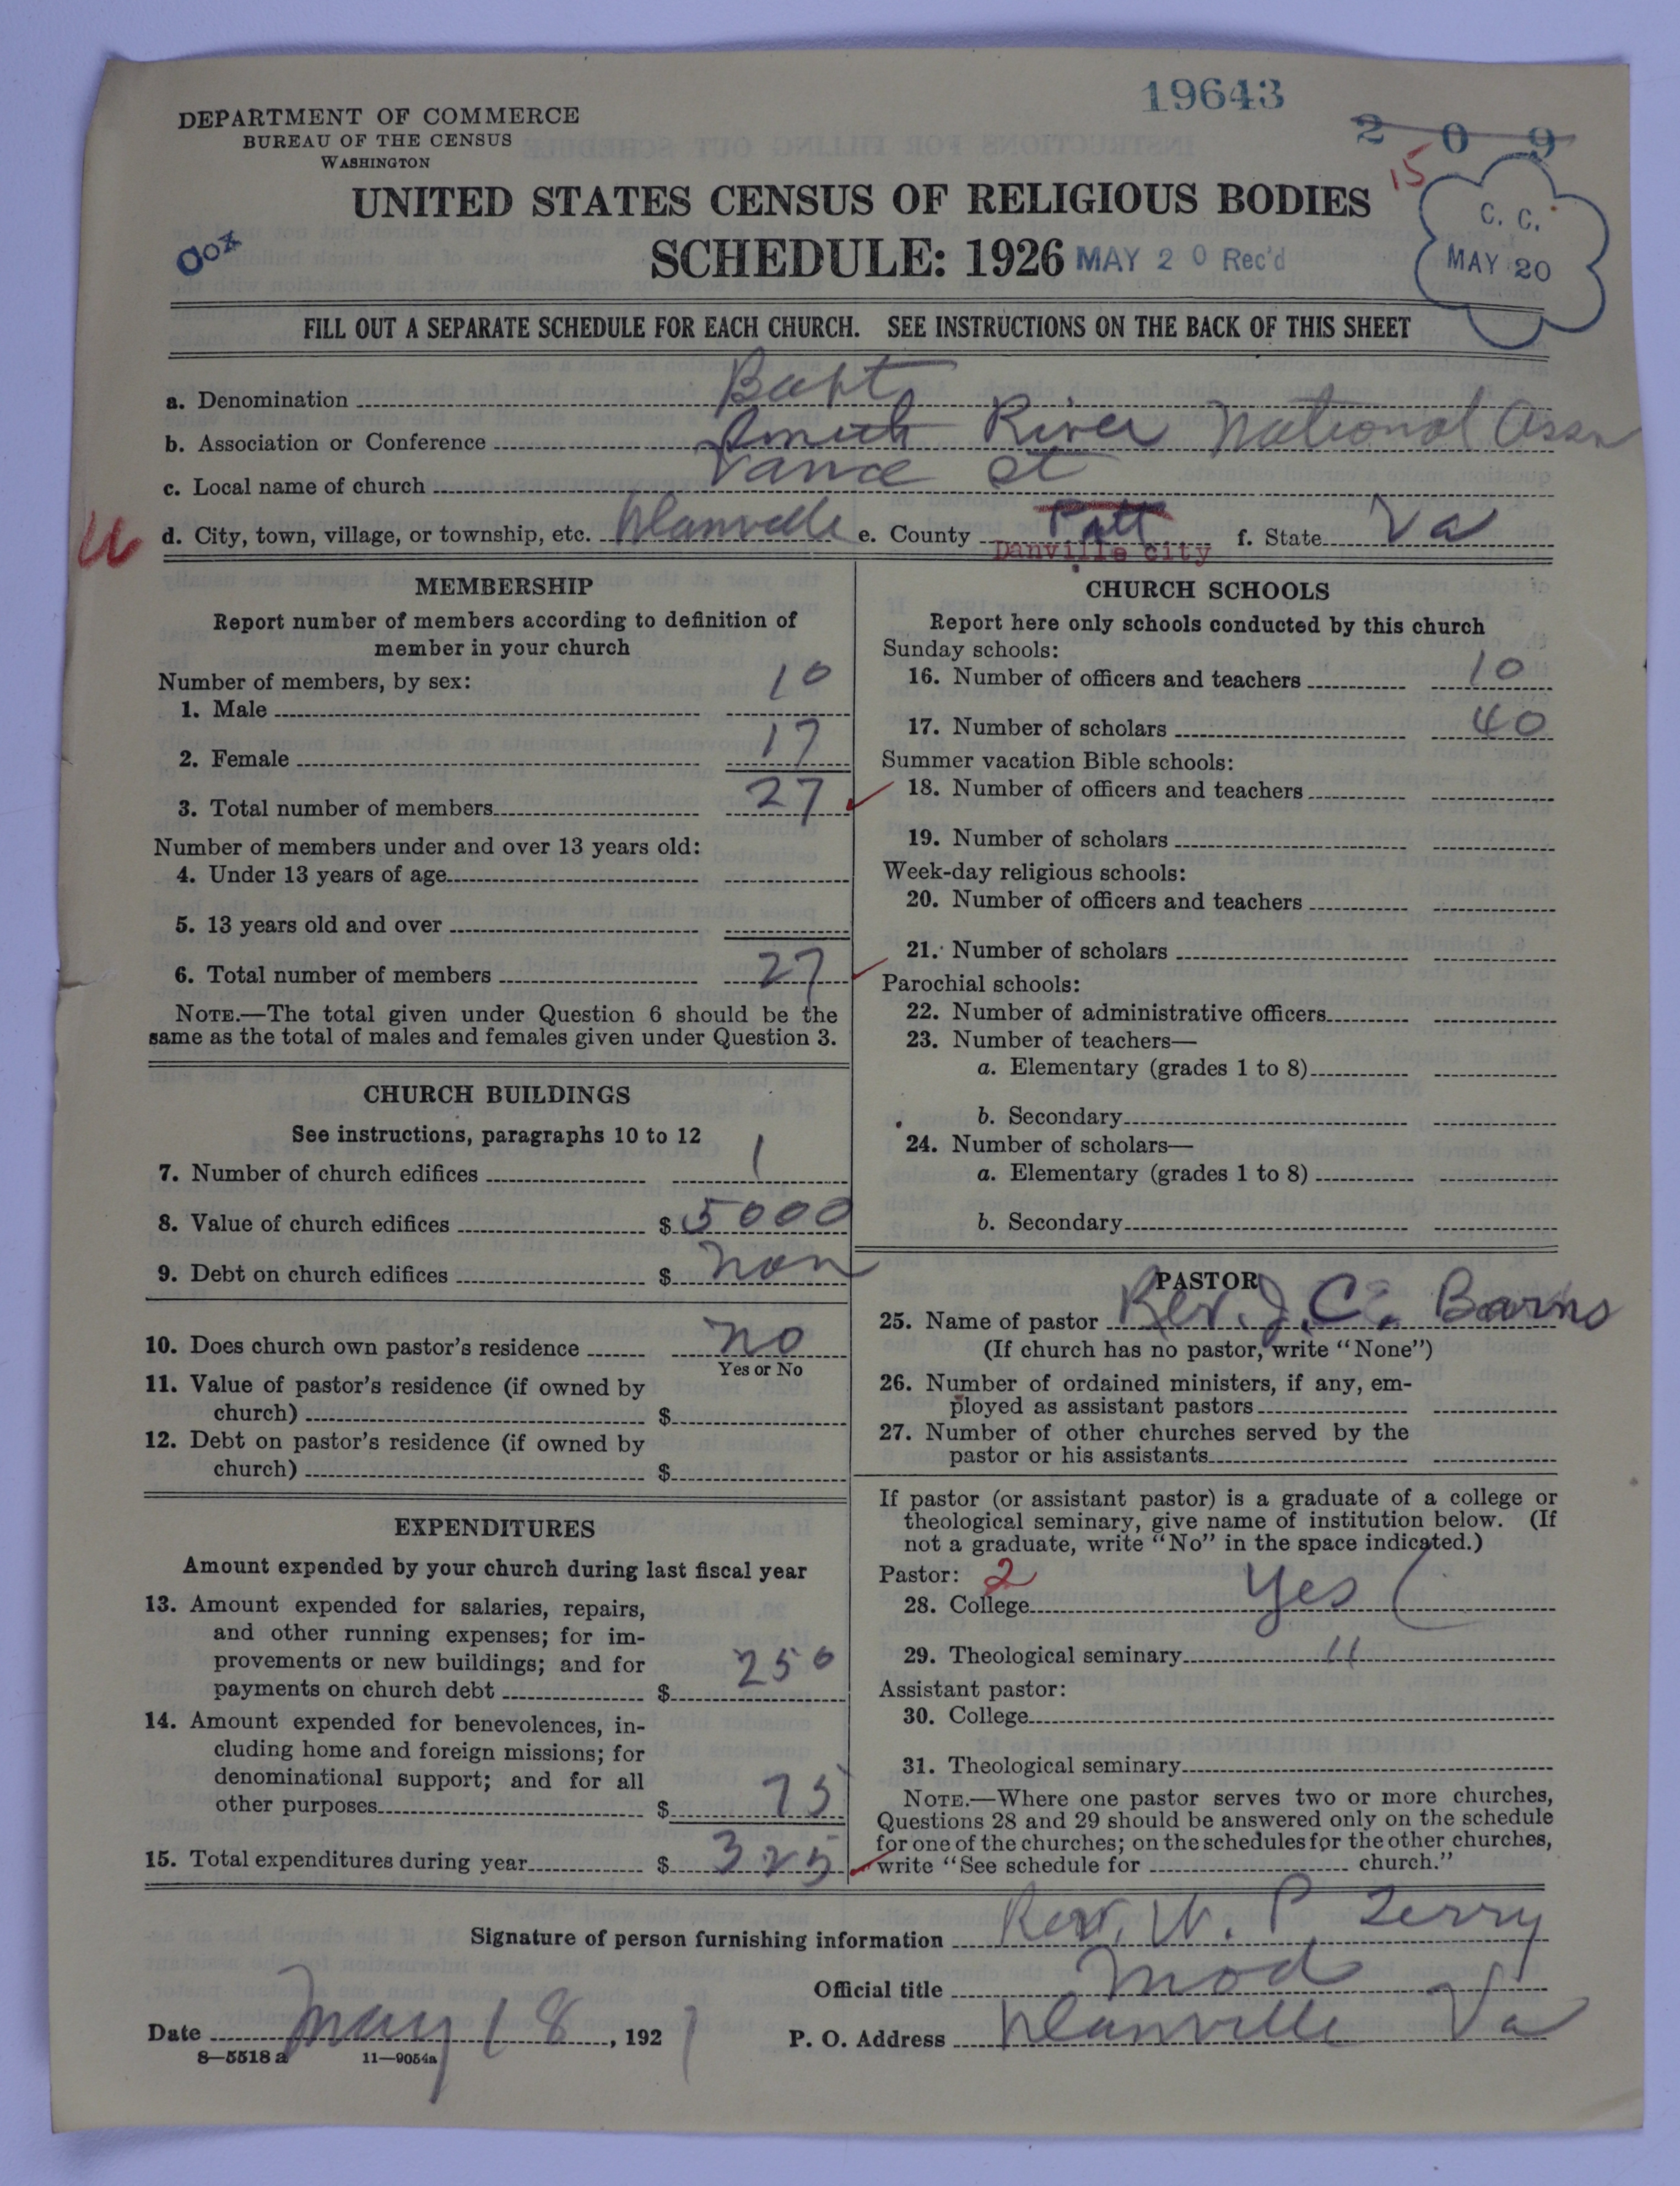 19643
DEPARTMENT OF COMMERCE
BUREAU OF THE CENSUS
WASHINGTON
2 0 9
15
UNITED STATES CENSUS OF RELIGIOUS BODIES
SCHEDULE: 1926 MAY 20 Rec'd
C. C.
MAY 20
FILL OUT A SEPARATE SCHEDULE FOR EACH CHURCH. SEE INSTRUCTIONS ON THE BACK OF THIS SHEET
a. Denomination Bapt
b. Association or Conference Smith River National Assn
c. Local name of church Vance St
d. City, town, village, or township, etc. Danville e. County Pitt f. State Va
Danville city
MEMBERSHIP
Report number of members according to definition of
member in your church
Number of members, by sex:
1. Male 10
2. Female 17
3. Total number of members 27
Number of members under and over 13 years old:
4. Under 13 years of age
5. 13 years old and over
6. Total number of members 27
NOTE.—The total given under Question 6 should be the
same as the total of males and females given under Question 3.
CHURCH BUILDINGS
See instructions, paragraphs 10 to 12
7. Number of church edifices 1
8. Value of church edifices $ 5000
9. Debt on church edifices $ non
10. Does church own pastor's residence no
Yes or No
11. Value of pastor's residence (if owned by
church) $
12. Debt on pastor's residence (if owned by
church) $
EXPENDITURES
Amount expended by your church during last fiscal year
13. Amount expended for salaries, repairs,
and other running expenses; for im-
provements or new buildings; and for
payments on church debt $ 250
14. Amount expended for benevolences, in-
cluding home and foreign missions; for
denominational support; and for all
other purposes $ 75
15. Total expenditures during year $ 325
CHURCH SCHOOLS
Report here only schools conducted by this church
Sunday schools:
16. Number of officers and teachers 10
17. Number of scholars 40
Summer vacation Bible schools:
18. Number of officers and teachers
19. Number of scholars
Week-day religious schools:
20. Number of officers and teachers
21. Number of scholars
Parochial schools:
22. Number of administrative officers
23. Number of teachers—
a. Elementary (grades 1 to 8)
b. Secondary
24. Number of scholars—
a. Elementary (grades 1 to 8)
b. Secondary
PASTOR
25. Name of pastor Rev. J. C. Barns
(If church has no pastor, write "None")
26. Number of ordained ministers, if any, em-
ployed as assistant pastors
27. Number of other churches served by the
pastor or his assistants
If pastor (or assistant pastor) is a graduate of a college or
theological seminary, give name of institution below. (If
not a graduate, write "No" in the space indicated.)
Pastor: 2
28. College Yes (
29. Theological seminary "
Assistant pastor:
30. College
31. Theological seminary
NOTE.—Where one pastor serves two or more churches,
Questions 28 and 29 should be answered only on the schedule
for one of the churches; on the schedules for the other churches,
write "See schedule for church."
Signature of person furnishing information Rev. W. P. Terry
Official title Mod
Date May 18, 192
P. O. Address Danville Va
8—5518 a 11—9054a